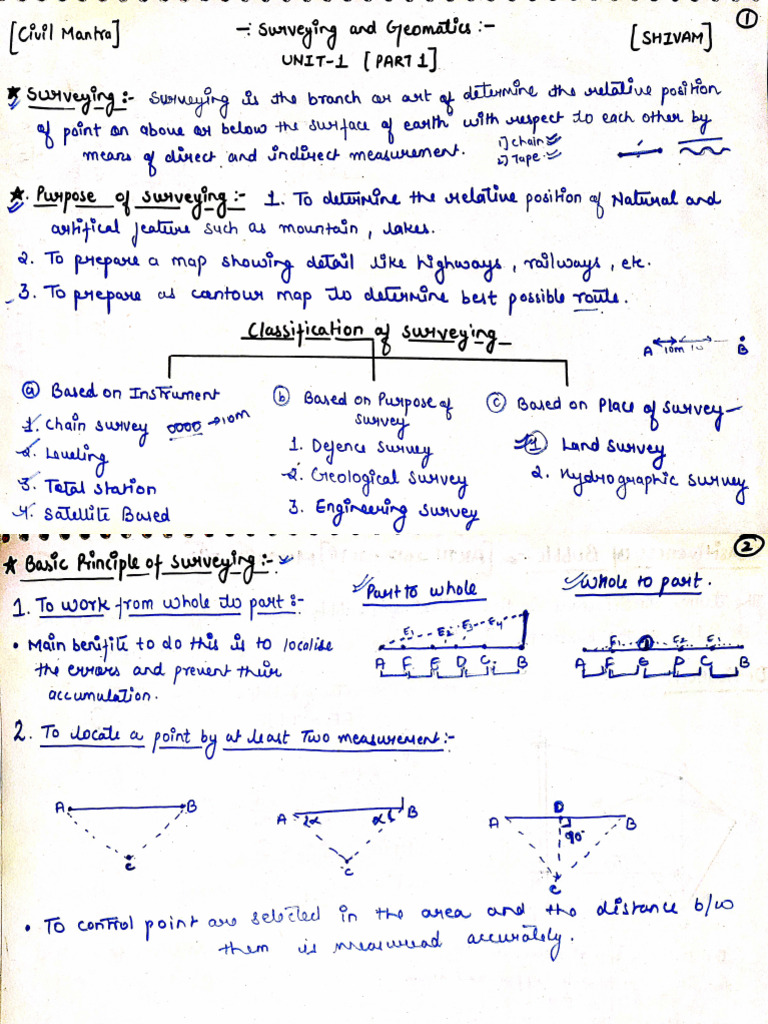 [Civil Mantra]
-: Surveying and Geomatics :-
[SHIVAM]
1
UNIT-1 [PART 1]
★ Surveying :- Surveying is the branch or art of determine the relative position
of point on above or below the surface of earth with respect to each other by
means of direct and indirect measurement.
1) chain
2) Tape
★. Purpose of surveying :- 1. To determine the relative position of Natural and
artifical feature such as mountain, lakes.
2. To prepare a map showing detail like highways, railways, etc.
3. To prepare as contour map to determine best possible route.
Classification of surveying
A 10m 10 B
(a) Based on Instrument
1. Chain survey → 10m
2. Leveling
3. Total station
4. Satellite Based
(b) Based on Purpose of
survey
1. Defence survey
2. Geological survey
3. Engineering survey
(c) Based on Place of survey
1 Land survey
2. Hydrographic survey
2
★ Basic Principle of surveying :-
1. To work from whole to part :-
Part to whole
Whole to part.
• Main benifite to do this is to localise
the errors and prevent their
accumulation.
E1 E2 E3 E4
A F E D C B
E1 E2 E1
A F E D C B
2. To locate a point by at least Two measurement :-
A B
C
A 2α α B
C
D
A B
90°
C
• To control point are selected in the area and the distance b/w
them is measuread accurately.